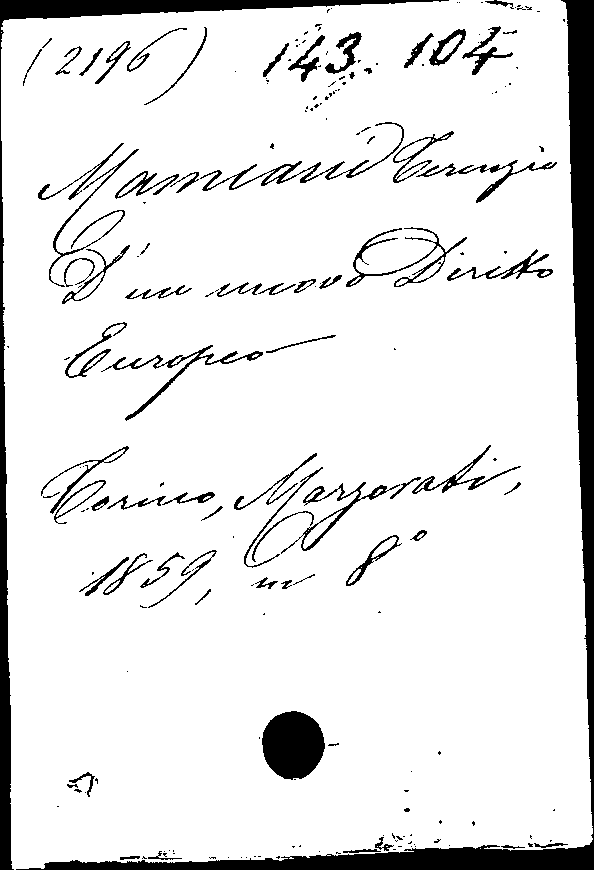 (2196) 143. 104
Mamiani Terenzio
D'un nuovo Diritto
Europeo
Torino, Marzorati,
1859, in 8°